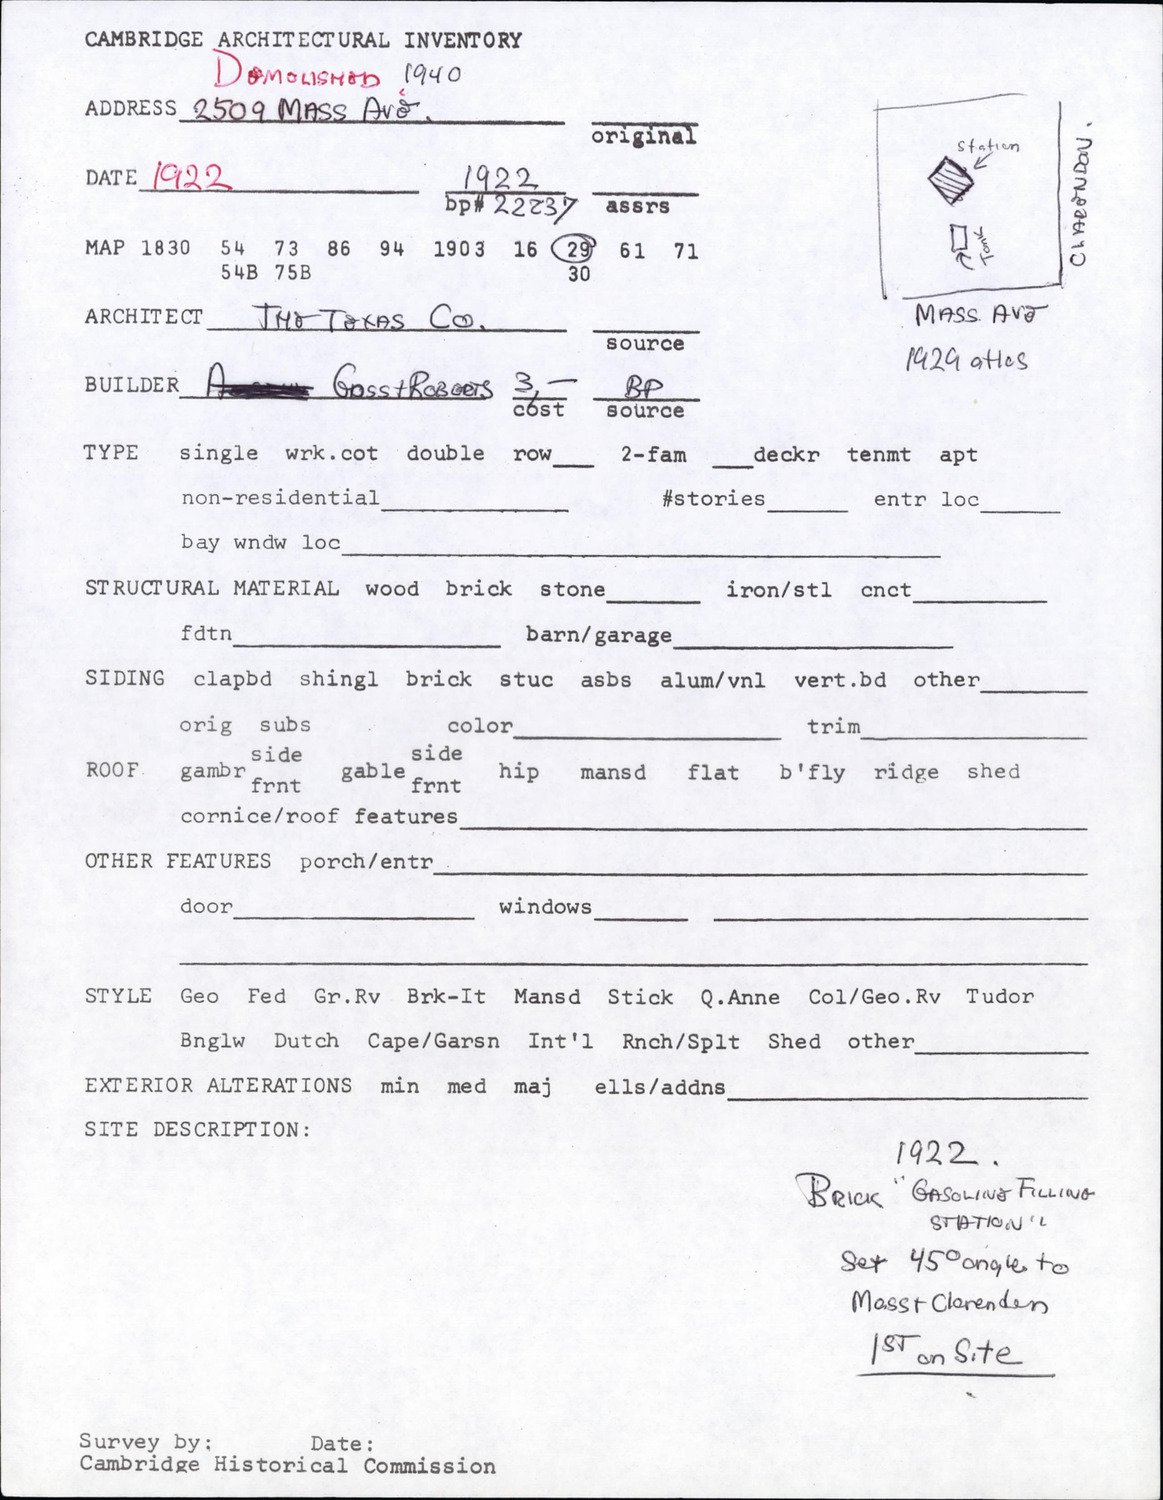 CAMBRIDGE ARCHITECTURAL INVENTORY
DEMOLISHED 1940
ADDRESS 2509 MASS AVE.
original
DATE 1922 1922
bp# 22237 assrs
MAP 1830 54 73 86 94 1903 16 29 61 71
54B 75B 30
ARCHITECT THE TEXAS CO.
source
BUILDER GOSS + ROBERTS 3,— BP
cost source
Station
Tank
CLARENDON.
MASS. AVE
1929 atlas
TYPE single wrk.cot double row___ 2-fam ___deckr tenmt apt
non-residential #stories entr loc
bay wndw loc
STRUCTURAL MATERIAL wood brick stone iron/stl cnct
fdtn barn/garage
SIDING clapbd shingl brick stuc asbs alum/vnl vert.bd other
orig subs color trim
side side
ROOF gambr gable hip mansd flat b'fly ridge shed
frnt frnt
cornice/roof features
OTHER FEATURES porch/entr
door windows
STYLE Geo Fed Gr.Rv Brk-It Mansd Stick Q.Anne Col/Geo.Rv Tudor
Bnglw Dutch Cape/Garsn Int'l Rnch/Splt Shed other
EXTERIOR ALTERATIONS min med maj ells/addns
SITE DESCRIPTION:
1922.
BRICK "GASOLINE FILLING
STATION"
Set 45° angle to
Mass + Clarenden
1ST on Site
Survey by: Date:
Cambridge Historical Commission